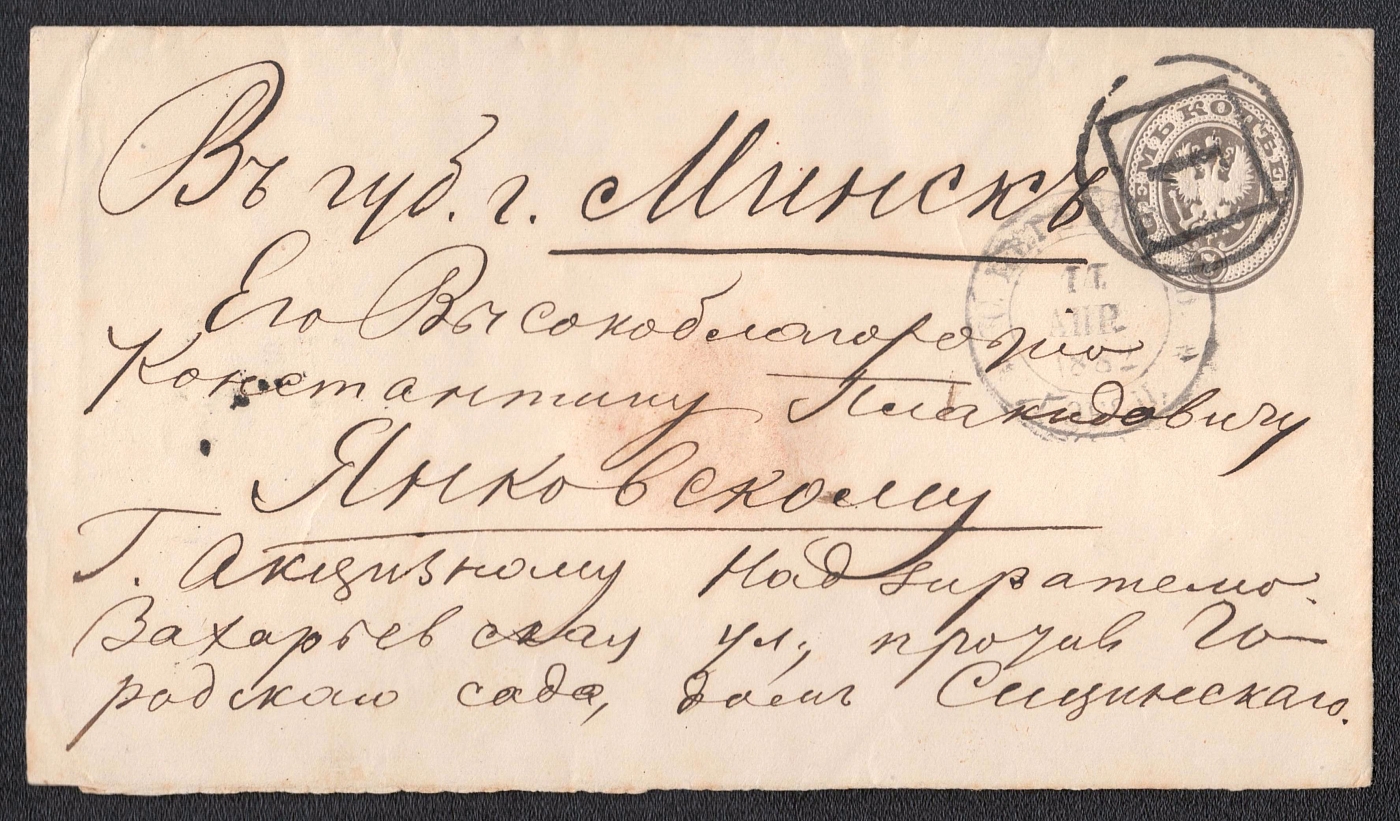 Въ губ. г. Минскъ
Его Высокоблагородію
Константину Плакидовичу
Янковскому
Г. Акцизному Надзирателю.
Захарьевская ул., противъ Го-
родскаго сада, домъ
СЕМЬ КОП.
1
АПР.